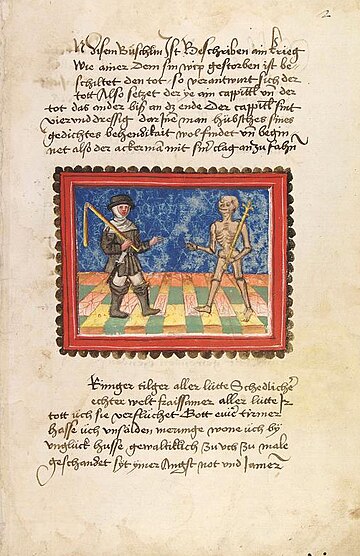 2
N disem Büschlin Ist Beschriben ain krieg
Wie ainer Dem sin wip gestorben ist be-
schiltet den tot so verantwurt sich der
tott Also setzet der ye ain cappittl vn der
tot das ander biß an dz ende Der cappittl sint
vierunddressig dar Inē man hübsches sines
gedichtes behendikait wol findet vn begin
net also der ackerman mit sinr clag an zu fahn
Rimger tilger aller lütte Schedlicher
echter welt fraissamer aller lütte Jr
tott üch sie verflüchet Gott ewer tirmer
hasse üch vnsälden merunge wone üch by
vnglück husse gewaltiklich zu üch zu male
geschandet syt ymer Angst not vnd Jamer